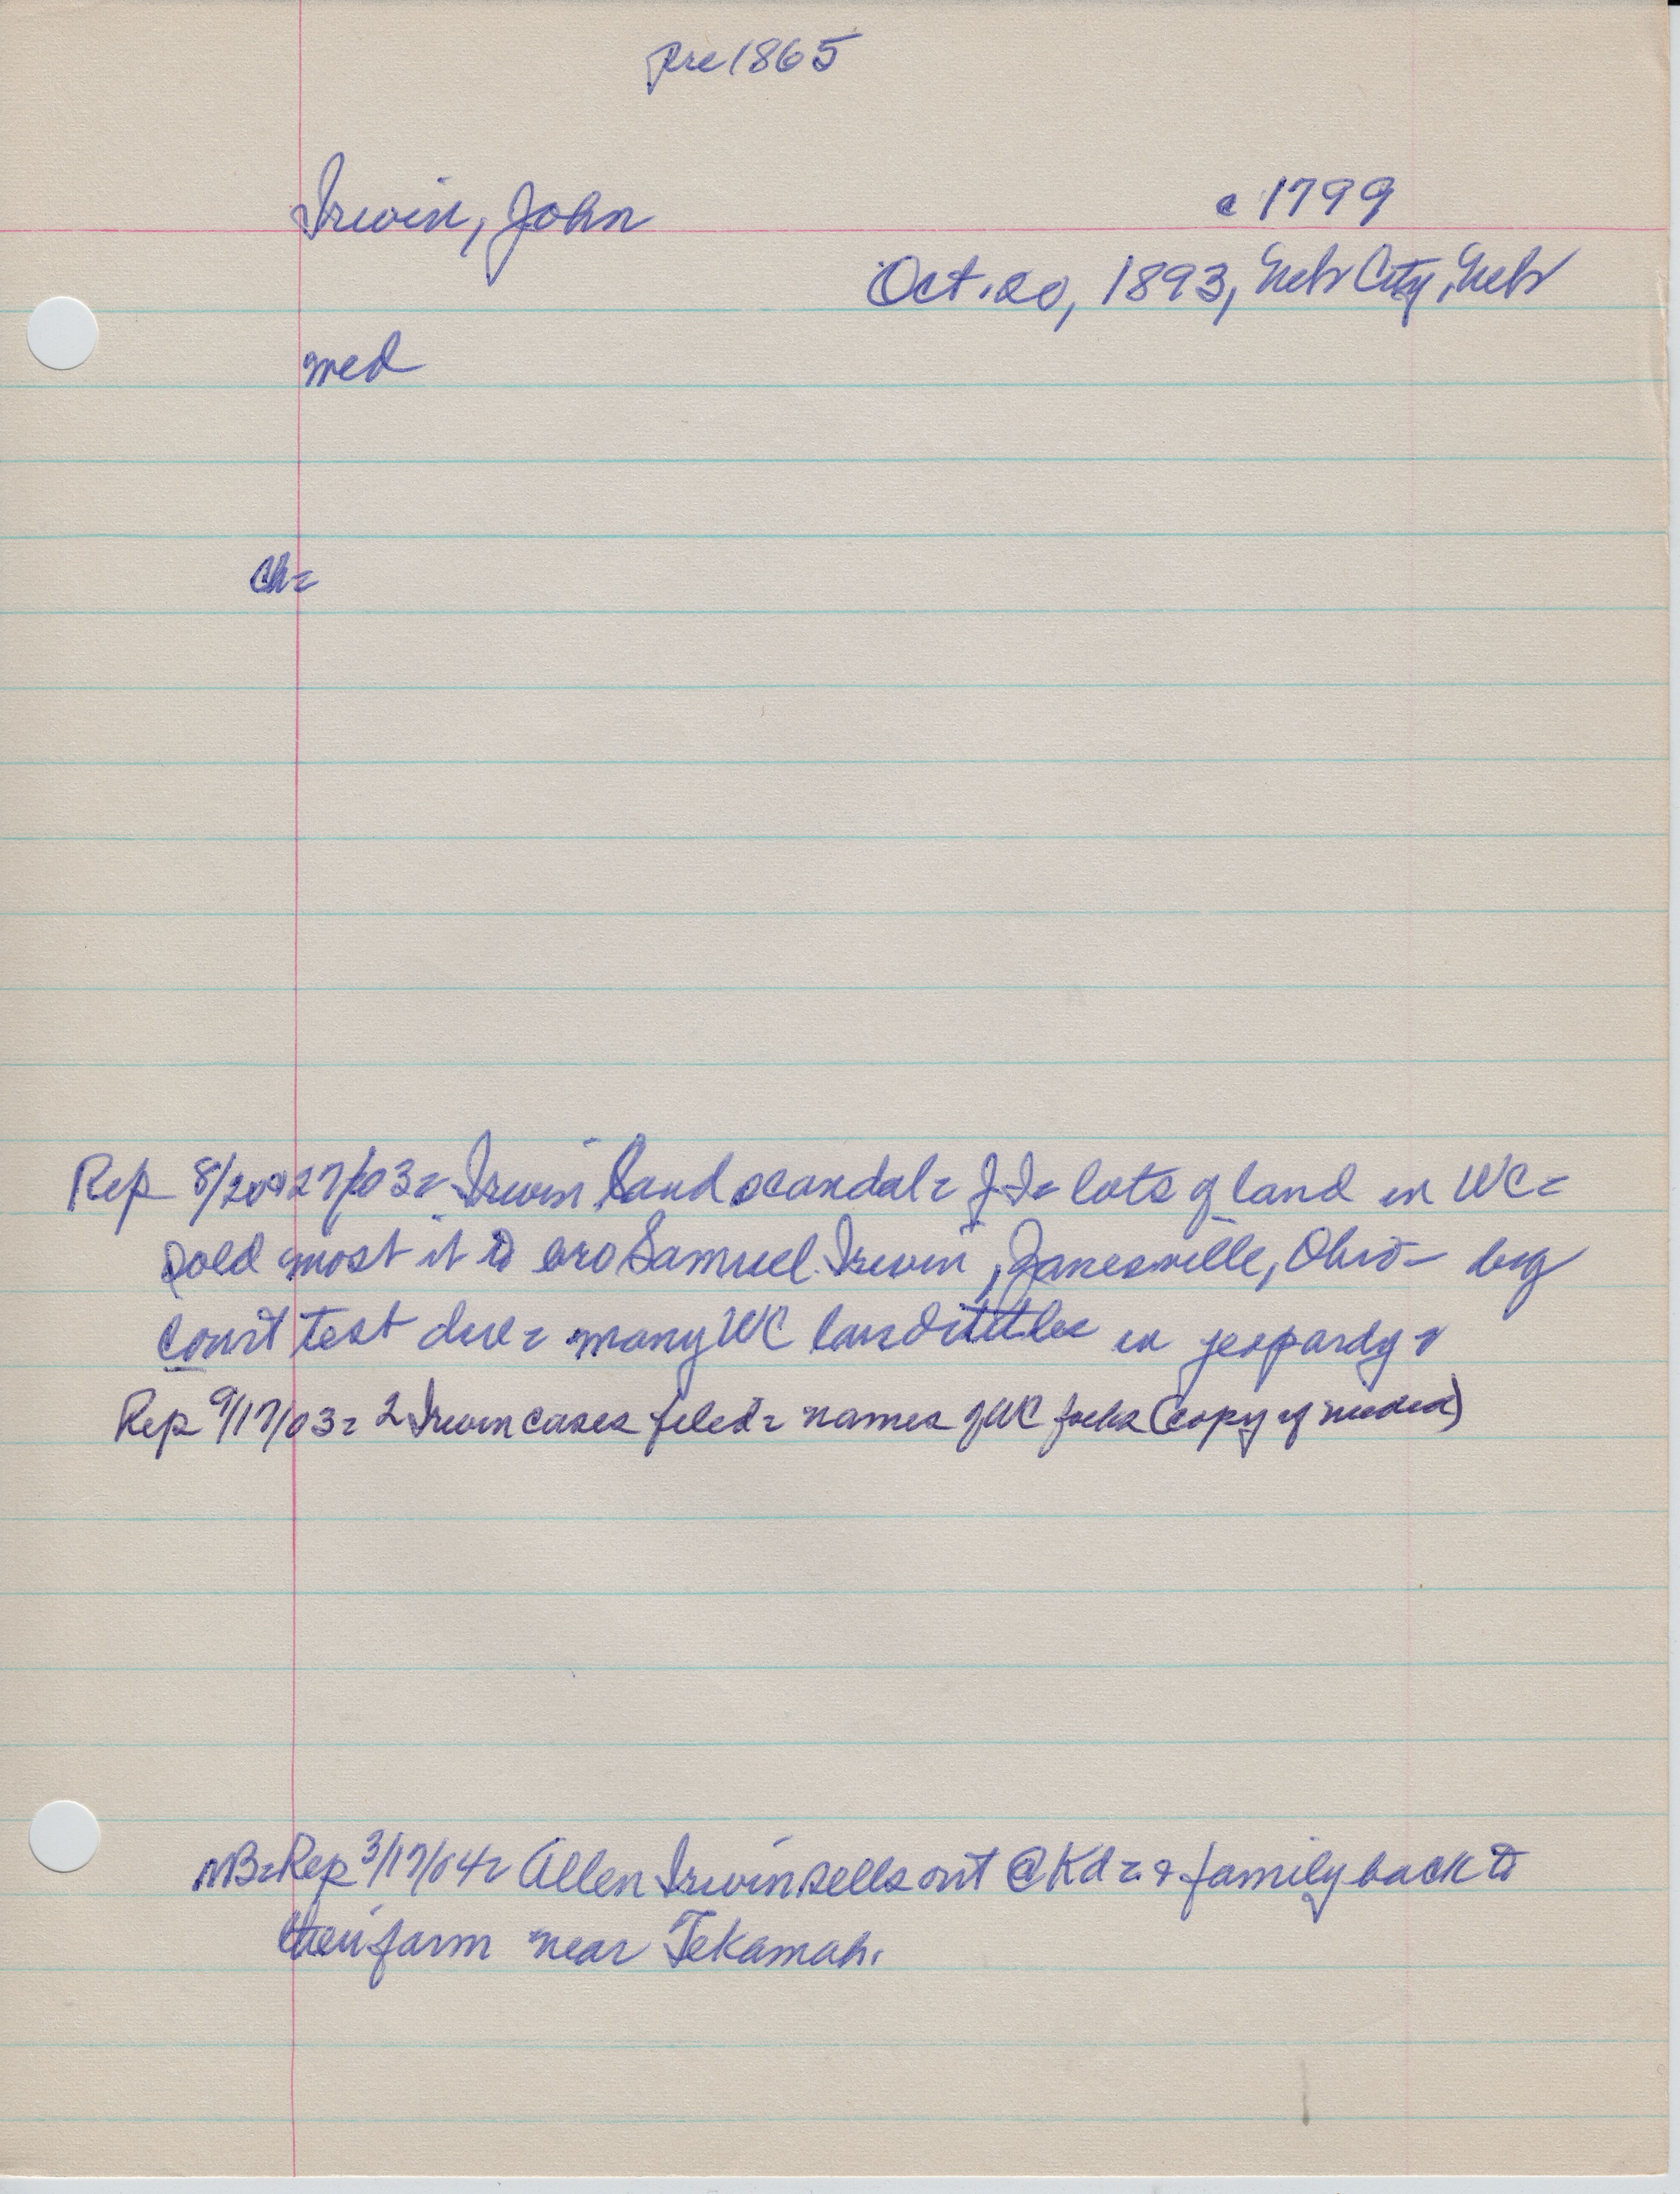 pre 1865
Irwin, John
c 1799
Oct. 20, 1893, Neb City, Neb
med
Ch=
Rep 8/20&27/03= Irwin land scandal= J I= lots of land in WC=
sold most it to bro Samuel Irwin, Zanesville, Ohio- big
court test due= many WC land titles in jeopardy
Rep 9/17/03= 2 Irwin cases filed= names of WC folks (copy if needed)
NB=Rep 3/17/04= Allen Irwin sells out @ Kd= & family back to
their farm near Tekamah.